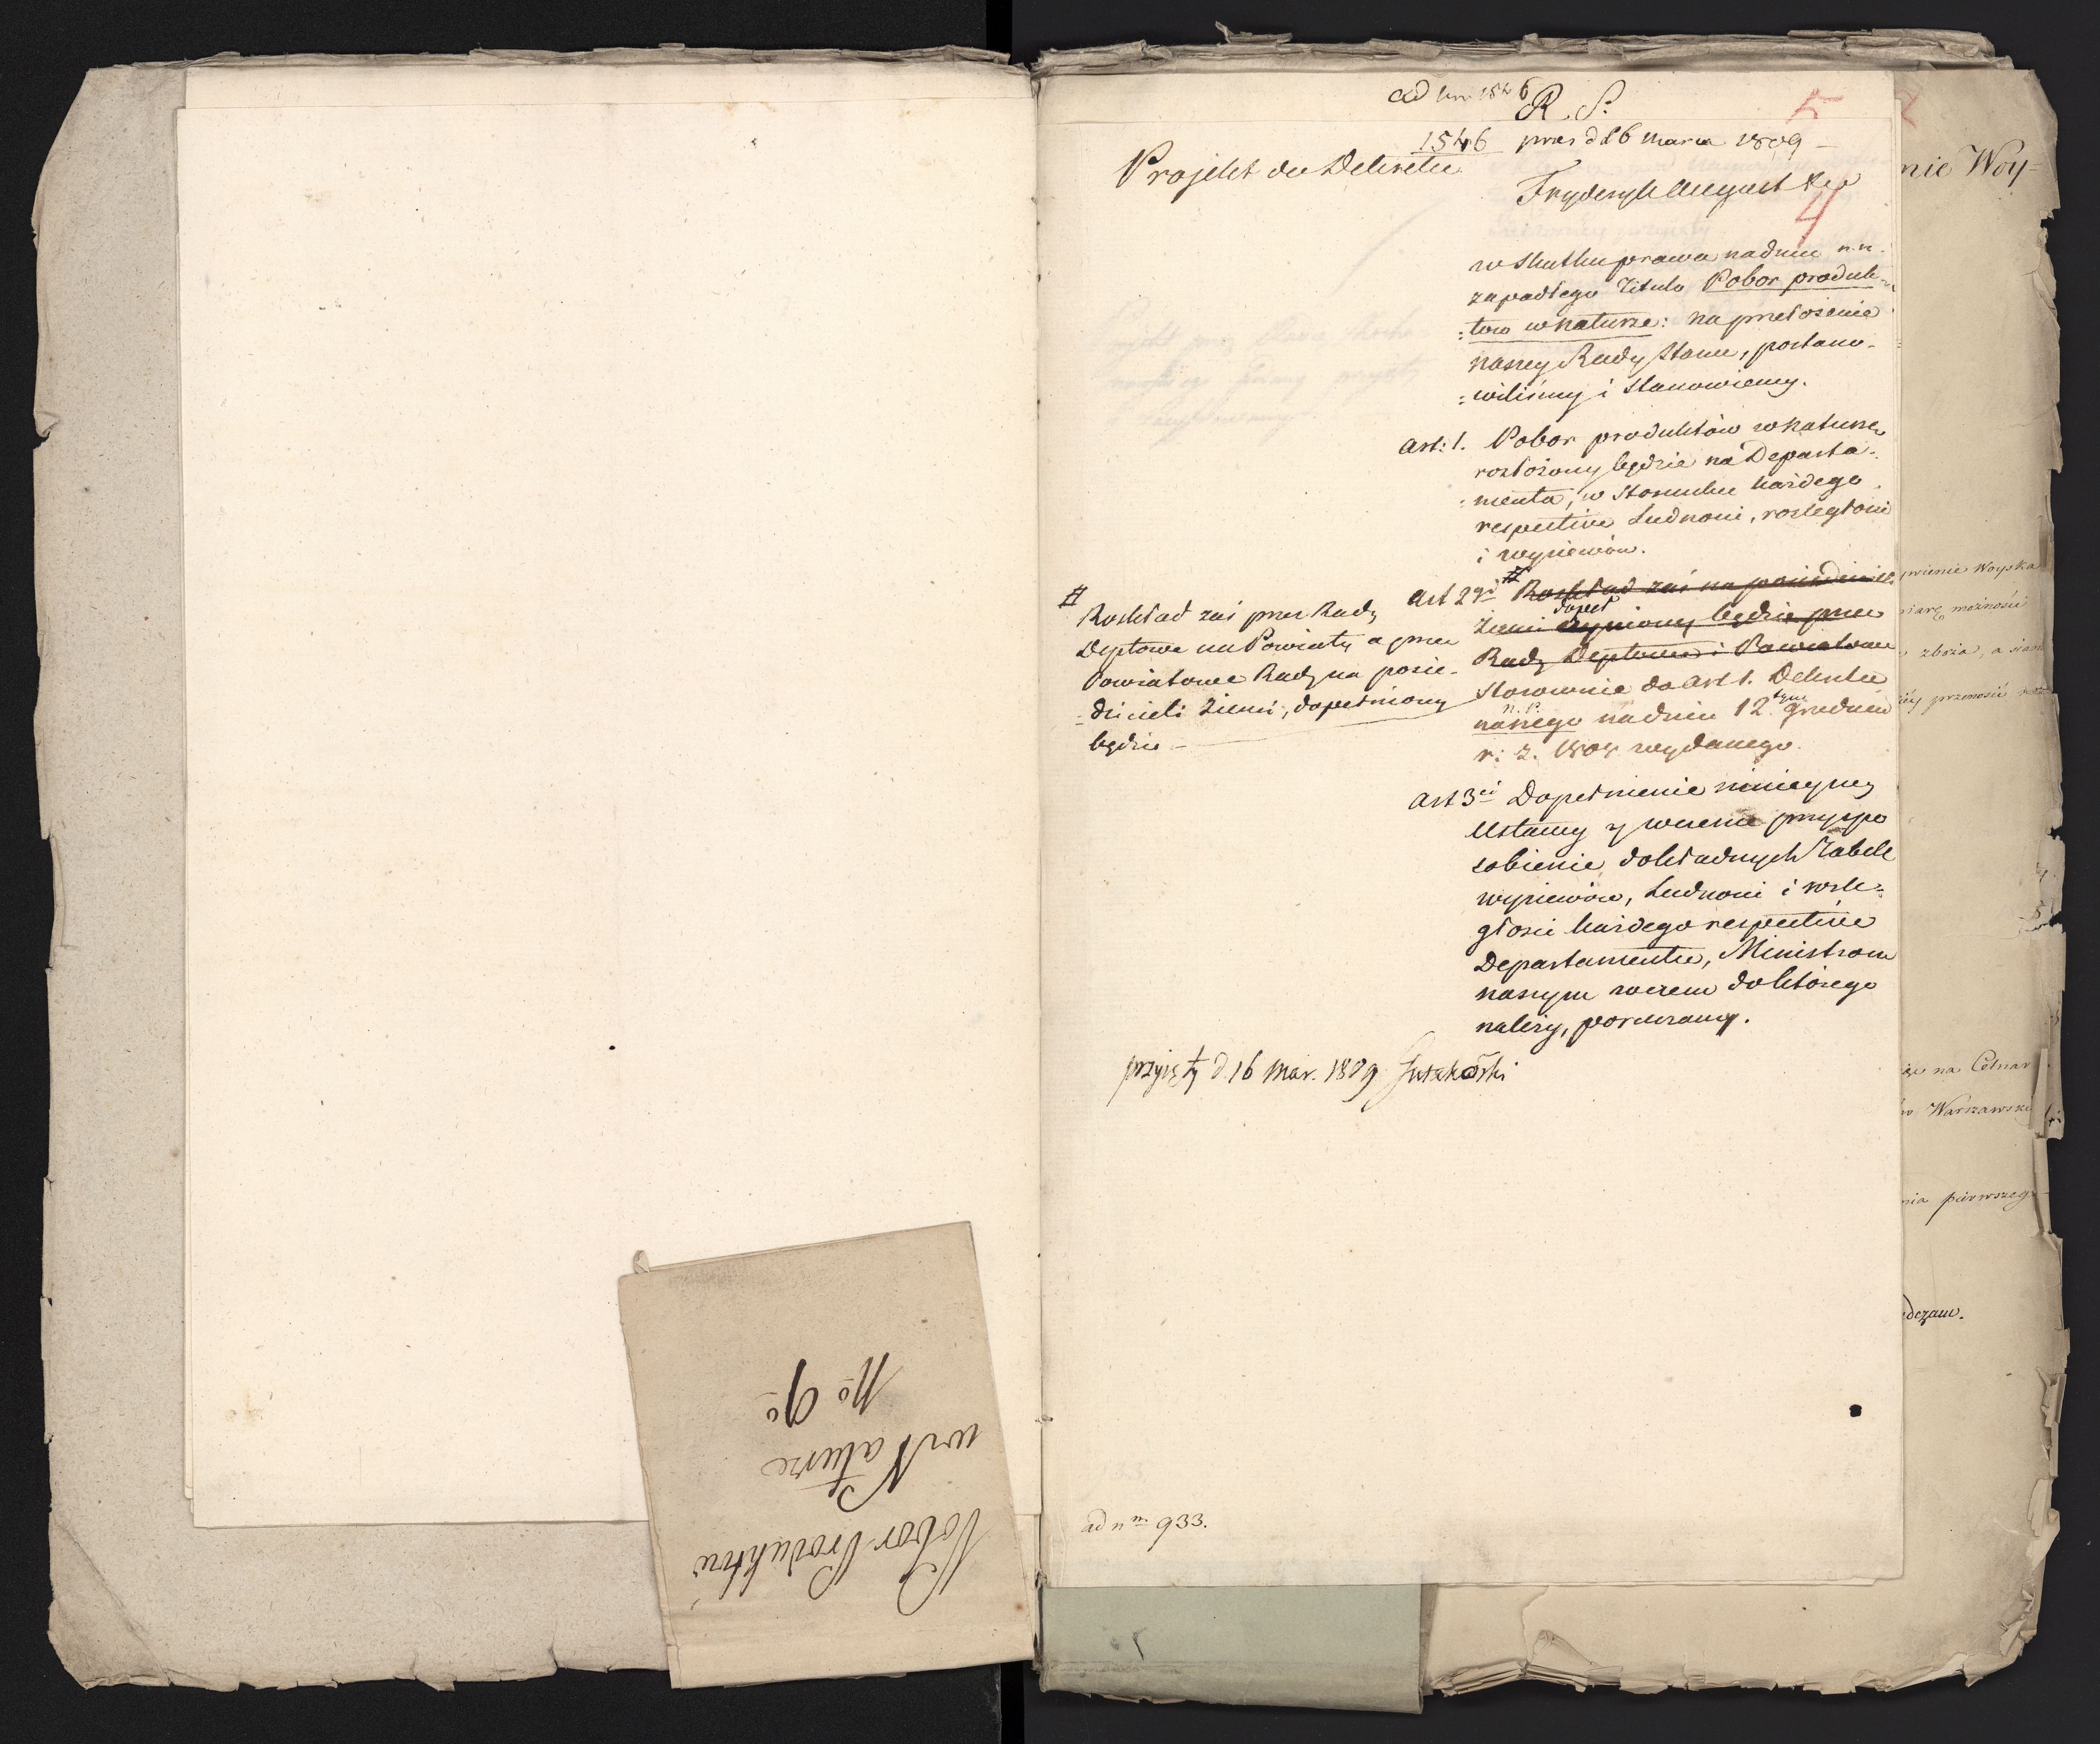 Pobor Produktów
w Naturze
No 9o
ad Nr 1546
R. S.
5
1546 prez d 16 Marca 1809
Projekt do Dekretu
Fryderyk August
4
w skutku prawa na dniu n. n.
zapadłego Titulo Pobor produk-
:tow w naturze: na przełożenie
naszey Rady Stanu, postano-
:wiliśmy i Stanowiemy.
Art: 1. Pobor produktów w naturze
rozłożony będzie na Departa-
:menta, w Stosunku każdego
respective Ludności, rozległości
i wysiewów.
Art 2gi # Rozkład zaś na posiedzicieli
Ziemi dopeł czyniony będzie przez
Rady Deptowe i Powiatowe
Stosownie do Art 1. Dekretu
naszego n. P. na dniu 12 tym Grudnia
r: z. 1808 wydanego.
# Rozkład zaś przez Rady
Deptowe na Powiaty a przez
Powiatowe Rady na posie-
:dzicieli Ziemi, dopełniony
będzie
Art 3ci Dopełnienie ninieyszey
Ustawy y wczesne przyspo
sobienie dokładnych Tabell
wysiewów, Ludności i rozle-
głości każdego respective
Departamentu, Ministrom
naszym wczem do którego
należy, poruczamy.
przyięty d. 16 Mar. 1809
ad nm 933.
nie Woy-
wienie Woyska
miarę możności
zboża, a siana
przenosić
na Cetnar
Warszawski
nia pierwszego
dczam.